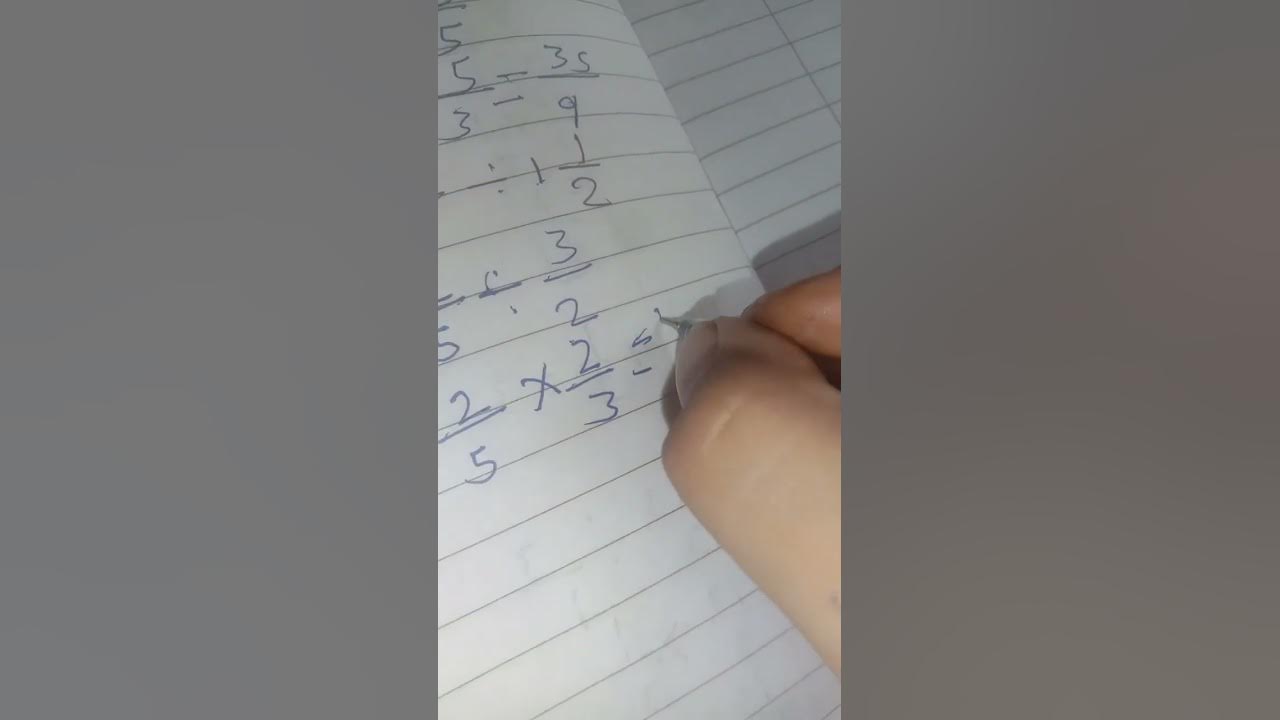 5
5/3 = 35/9
÷ 1 1/2
÷ 3/2
5
2/5 × 2/3 =